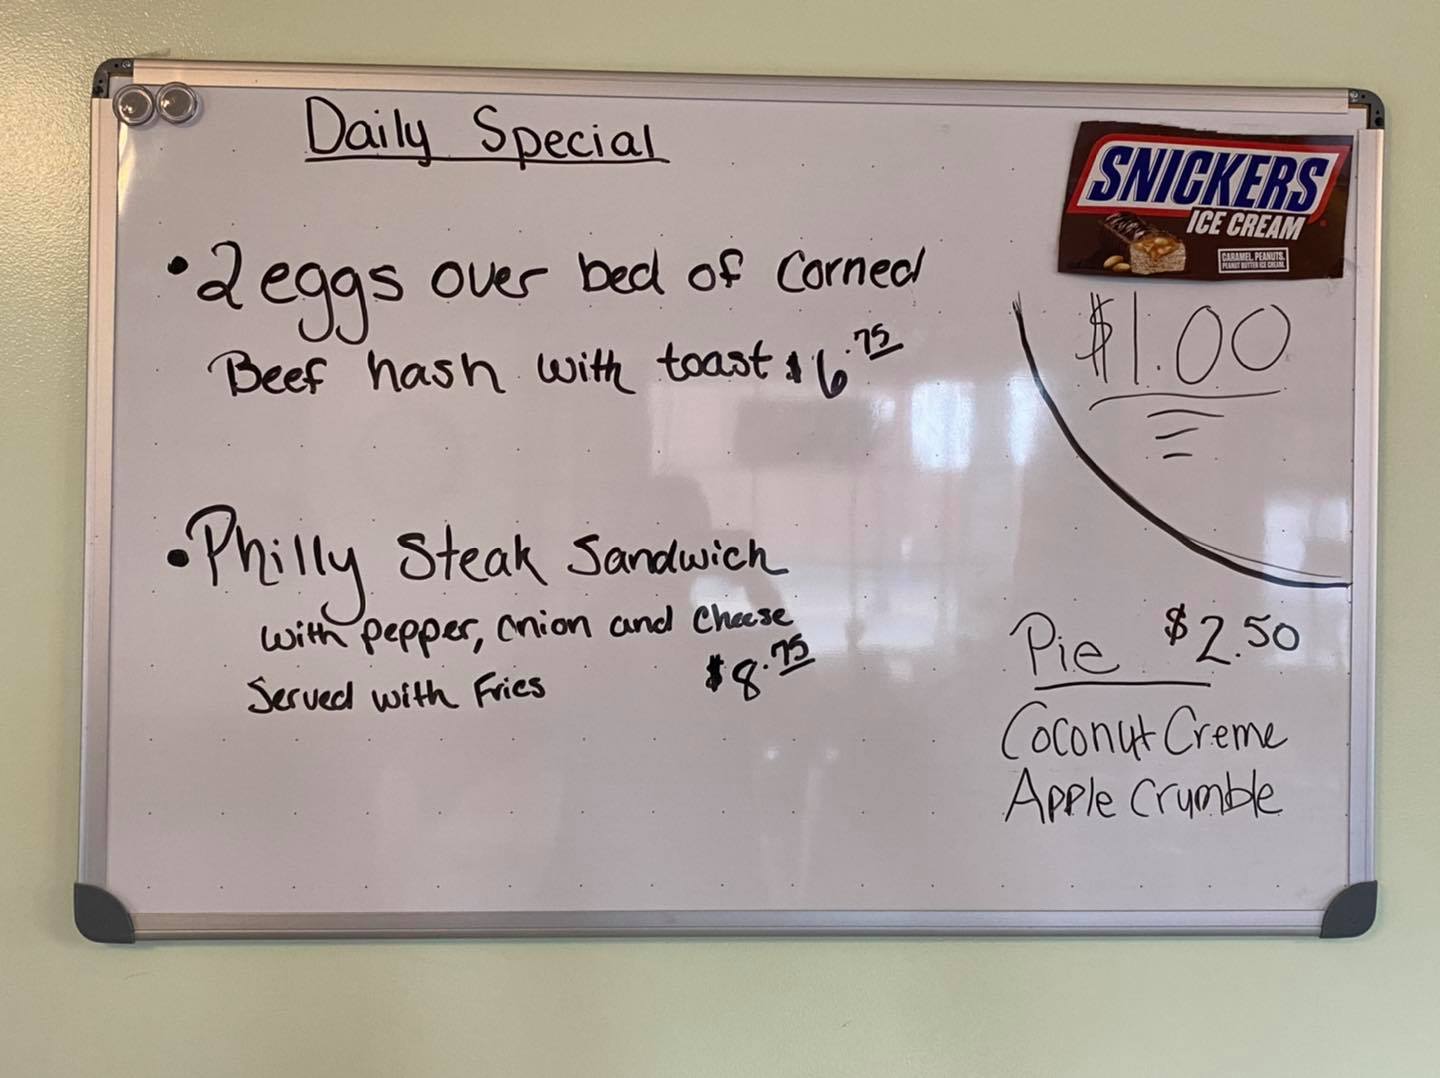 Daily Special
• 2 eggs over bed of Corned
Beef hash with toast $6.75
• Philly Steak Sandwich
with pepper, onion and Cheese
Served with Fries $8.75
SNICKERS
ICE CREAM
CARAMEL, PEANUTS,
PEANUT BUTTER ICE CREAM.
$1.00
Pie $2.50
Coconut Creme
Apple Crumble